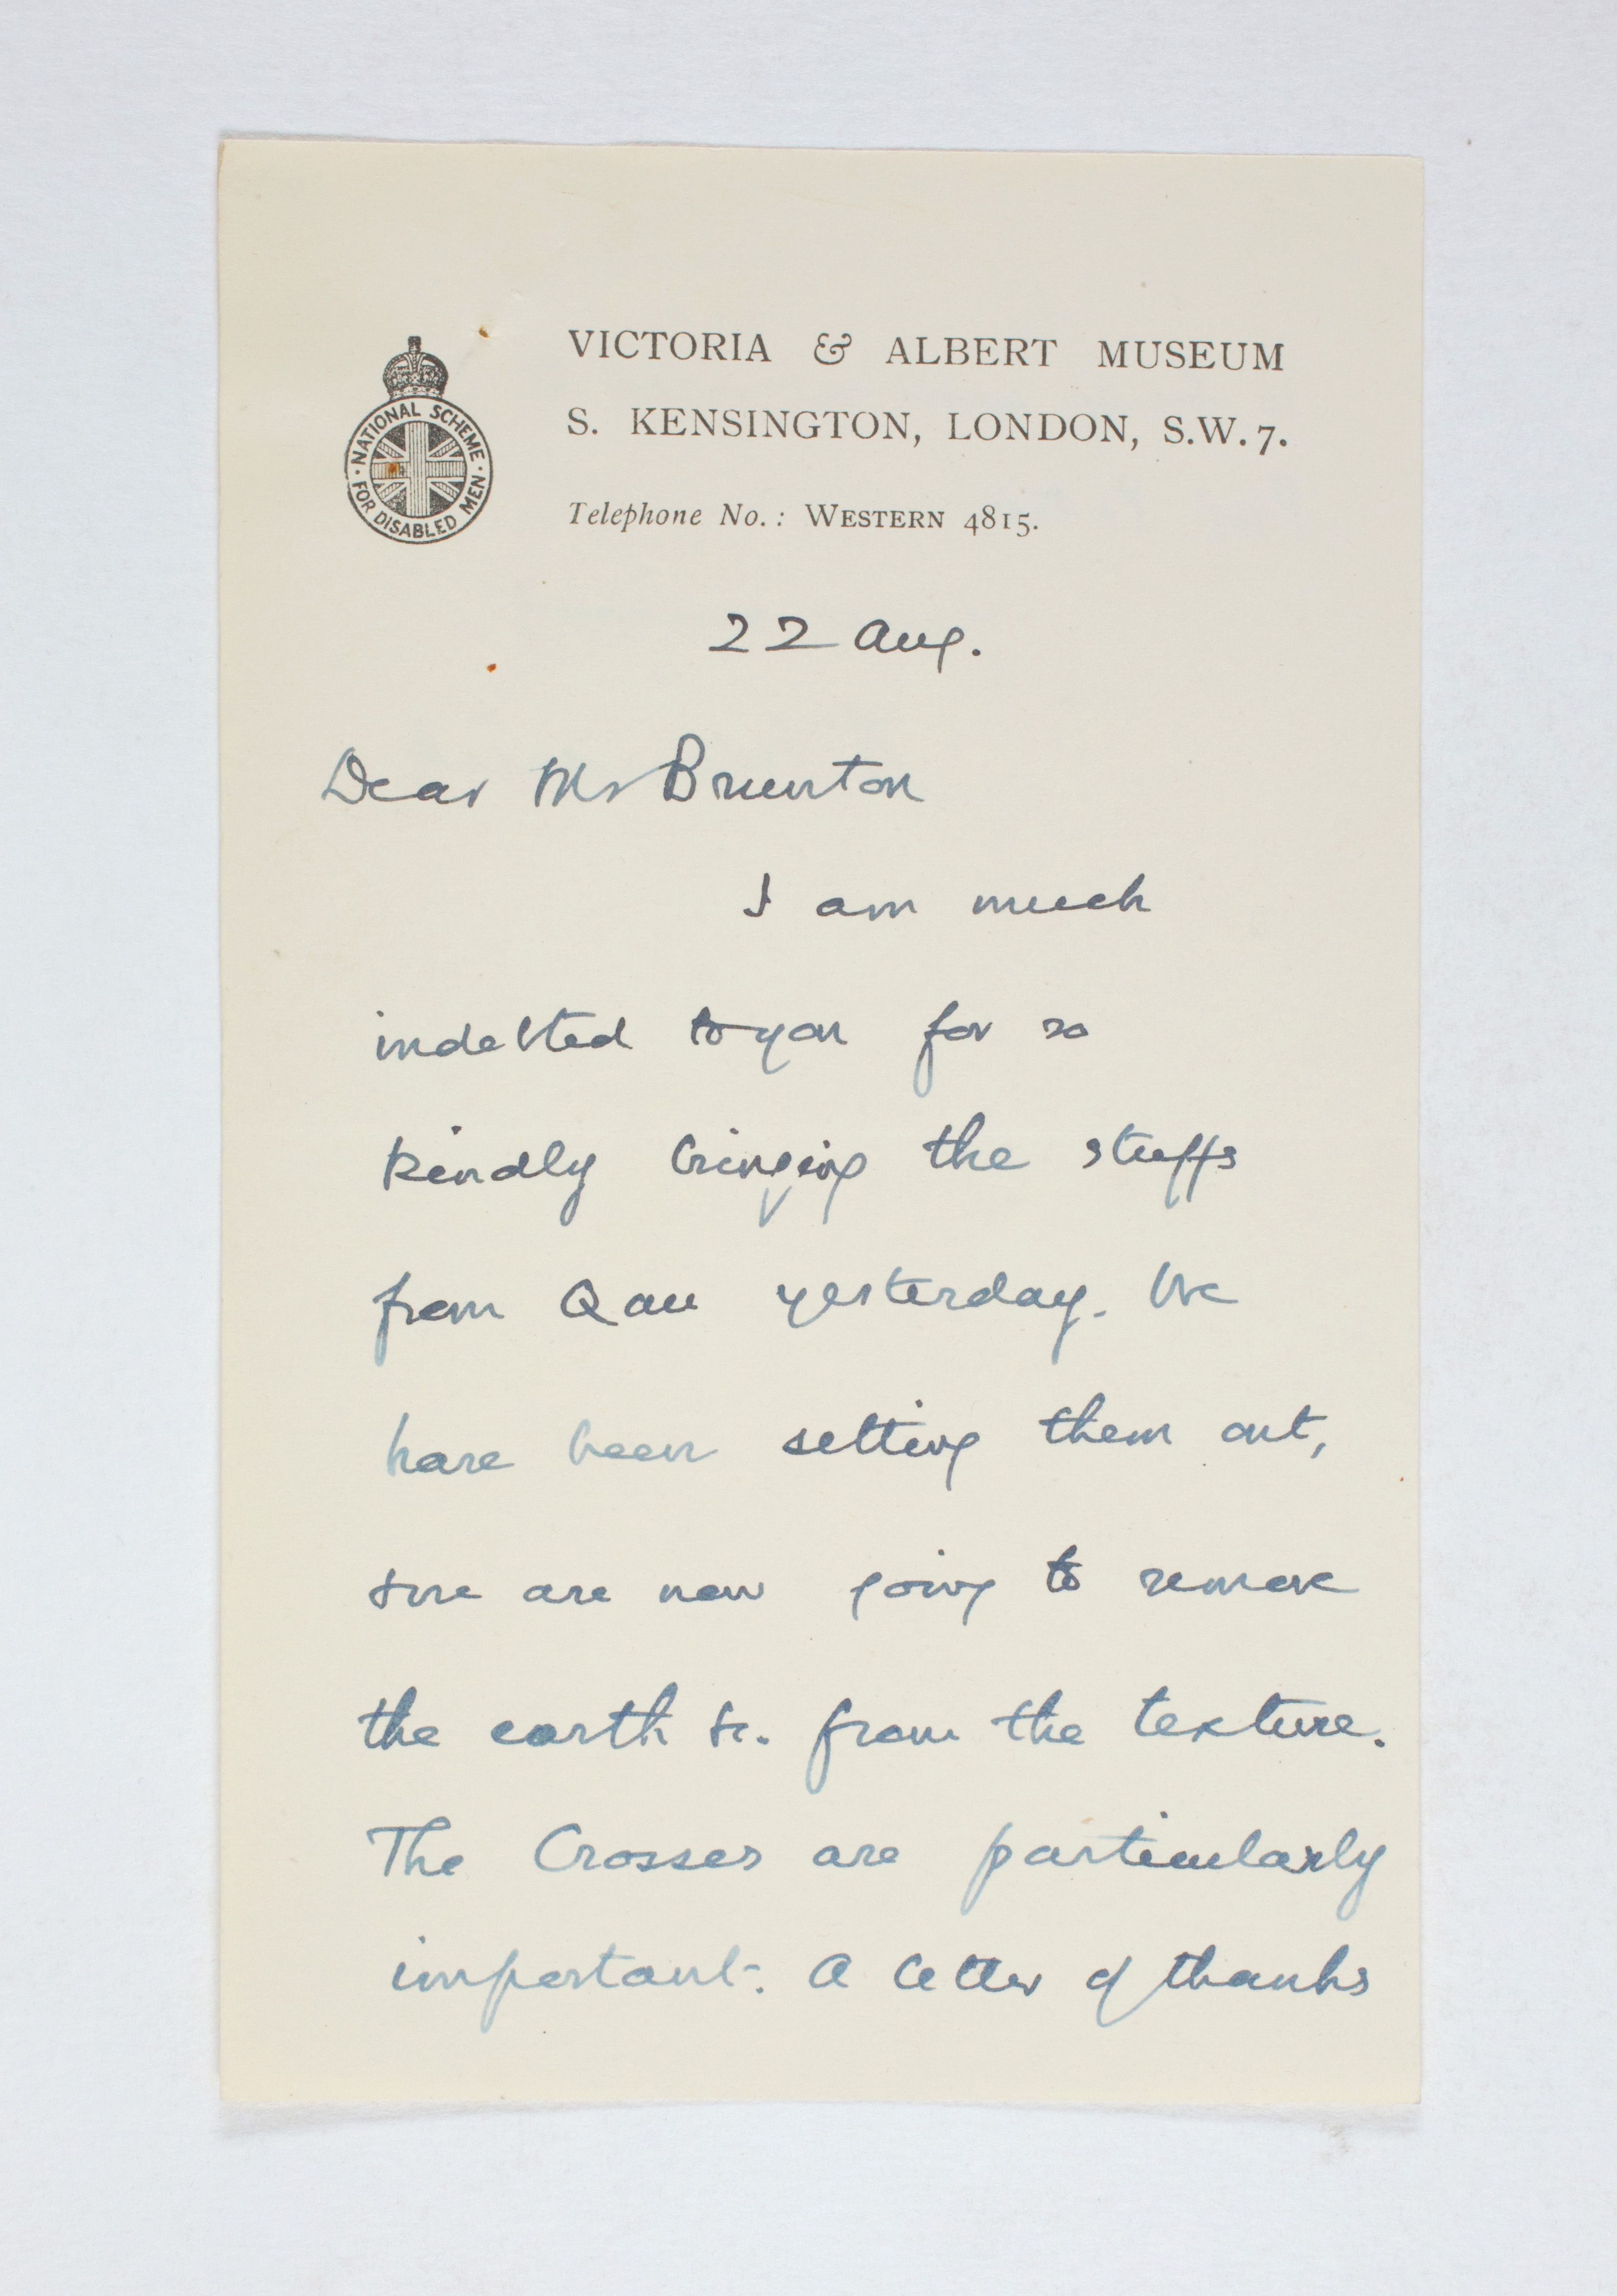 VICTORIA & ALBERT MUSEUM
S. KENSINGTON, LONDON, S.W.7.
Telephone No.: WESTERN 4815.
· NATIONAL SCHEME · FOR DISABLED MEN
22 Aug.
Dear Mr Brunton
I am much
indebted to you for so
kindly bringing the stuffs
from Qau yesterday. We
have been setting them out,
& we are now going to remove
the earth &c. from the texture.
The Crosses are particularly
important. A letter of thanks